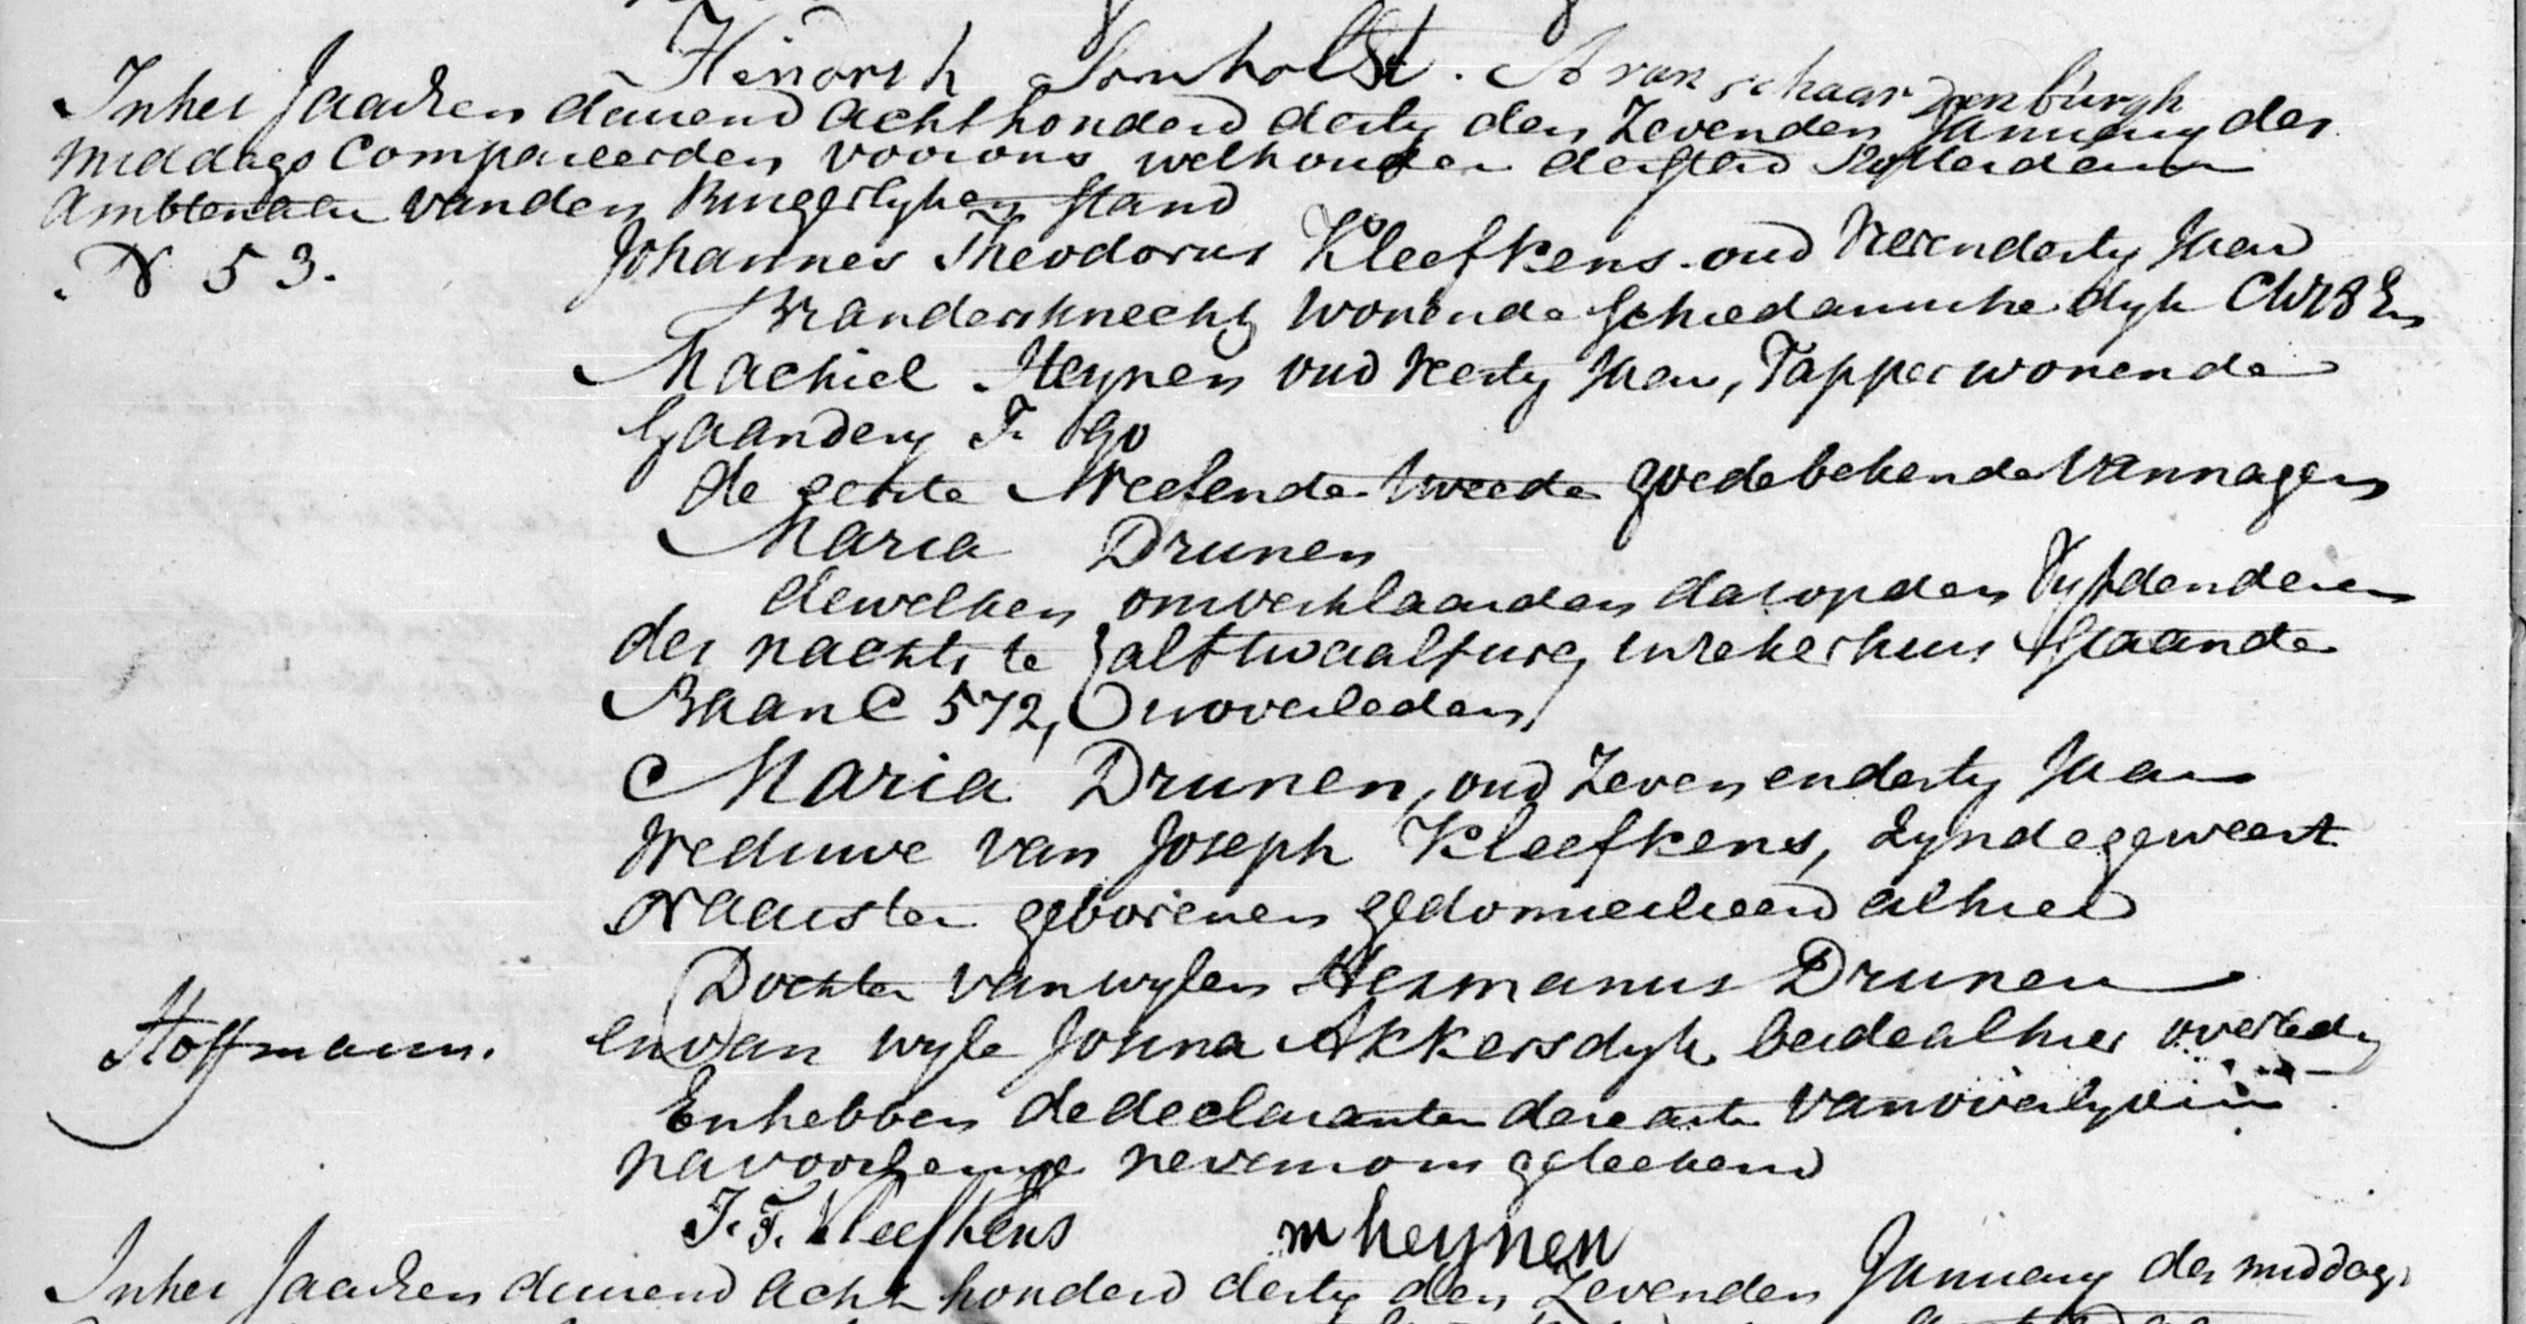 Hendrik Somholst. A van schaardenburgh
Inhet Jaar Een duizend achthonderd dertig den Zevenden January des
Middags Compareerden voor ons wethouder der Stad Rotterdam
Ambtenaar van den Burgerlyken Stand
N 53.
Johannes Theodorus Kleefkens oud Vierendertig Jaar
Brandersknecht wonende Schiedamsche dyk C W18 En
Machiel Heynen oud Veertig Jaar, Tapper wonende
Gaandery F. 90
de eerste Neef en de tweede goede bekende van nagen
Maria Drunen
dewelken ons verklaarden dat op den Vyfden dezer
des nachts te half twaalf ure, in zeker huis Staande
Baan C 572, is overleden
Maria Drunen, oud Zeven en dertig Jaar
Weduwe van Joseph Kleefkens, Zynde geweest
Naaister geboren en gedomicilieerd alhier
Dochter van wylen Hermanus Drunen
en van wyle Johna Akkersdyk beide alhier overledn
Hoffmann.
En hebben de declaranten deze acte van overlyden
na voorlezing nevens ons geteekend
J. T. Kleefkens m heynen
Inhet Jaar Een duizend acht honderd dertig den Zevenden January des middags